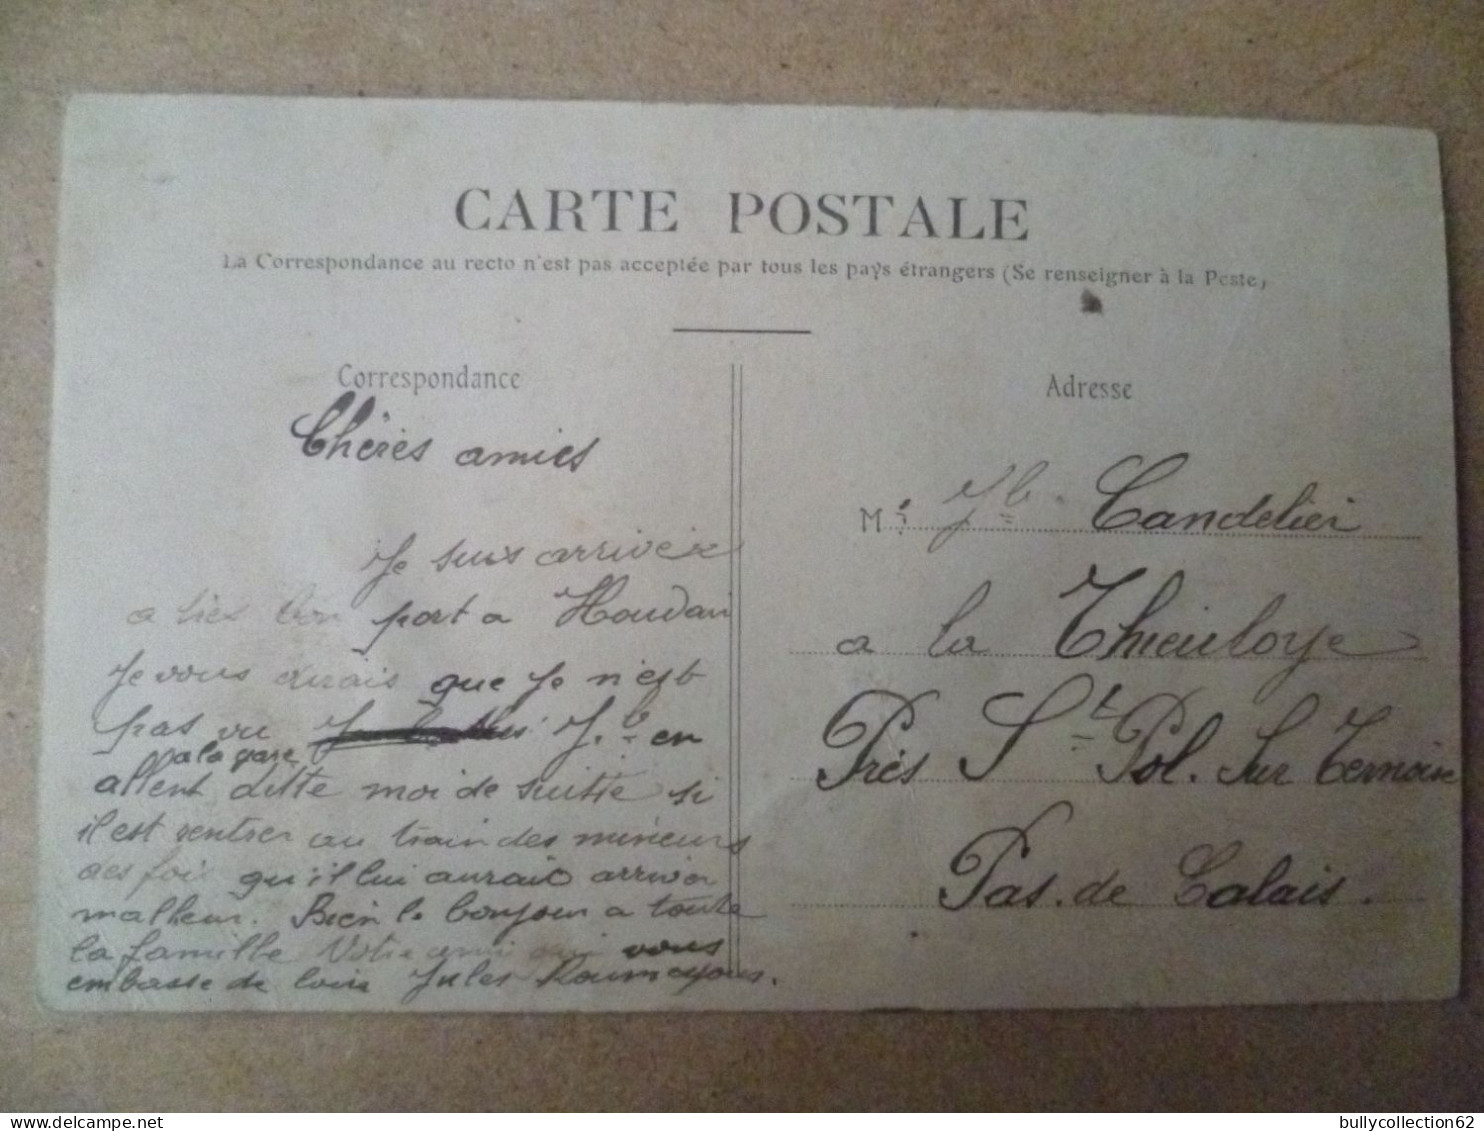 CARTE POSTALE
La Correspondance au recto n'est pas acceptée par tous les pays étrangers (Se renseigner à la Poste)
Correspondance
Chères amies
Je suis arriver
a bon port a Houdain
Je vous dirais que Je n'est
pas vu J.b en
a la gare
allent ditte moi de suitte si
il est rentrer au train des mineurs
des foi qu'il lui aurait arriver
malheur. Bien le bonjour a toute
la famille Votre ami qui vous
embasse de loin Jules
Adresse
Mr Jb Candelier
a la Thieuloye
Près St Pol. Sur Ternoise
Pas. de Calais.
bullycollection62